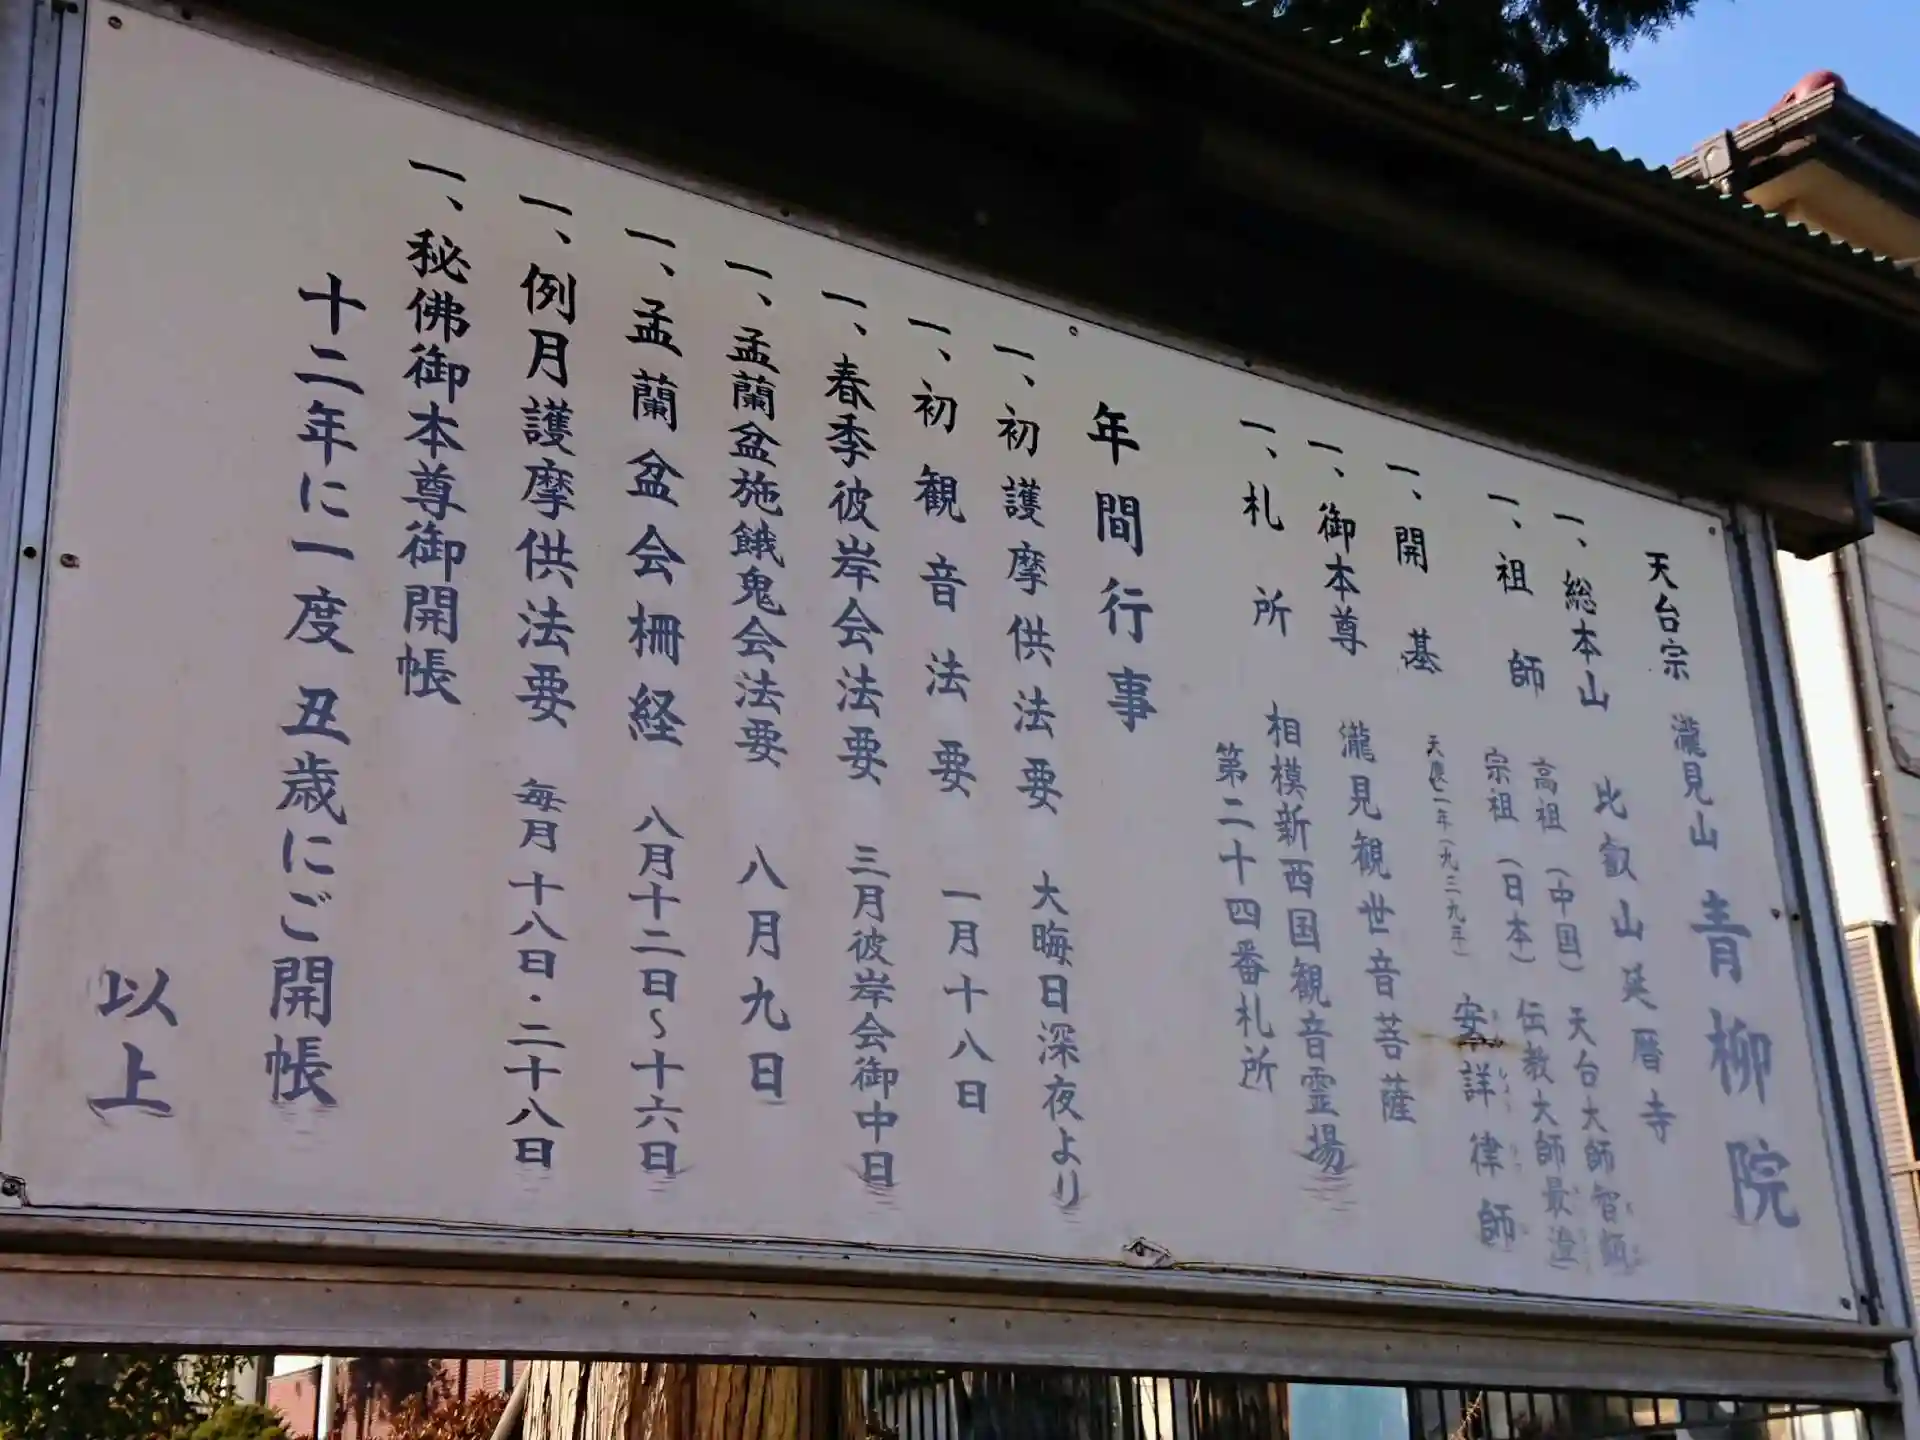 天台宗 瀧見山 青柳院
一、総本山 比叡山延暦寺
一、祖師 高祖（中国）天台大師智顗
宗祖（日本）伝教大師最澄
一、開基 天慶二年（九三九年） 安詳律師
一、御本尊 瀧見観世音菩薩
一、札所 相模新西国観音霊場
第二十四番札所
年間行事
一、初護摩供法要 大晦日深夜より
一、初観音法要 一月十八日
一、春季彼岸会法要 三月彼岸会御中日
一、孟蘭盆施餓鬼会法要 八月九日
一、孟蘭盆会柵経 八月十二日〜十六日
一、例月護摩供法要 毎月十八日・二十八日
一、秘佛御本尊御開帳
十二年に一度 丑歳にご開帳
以上